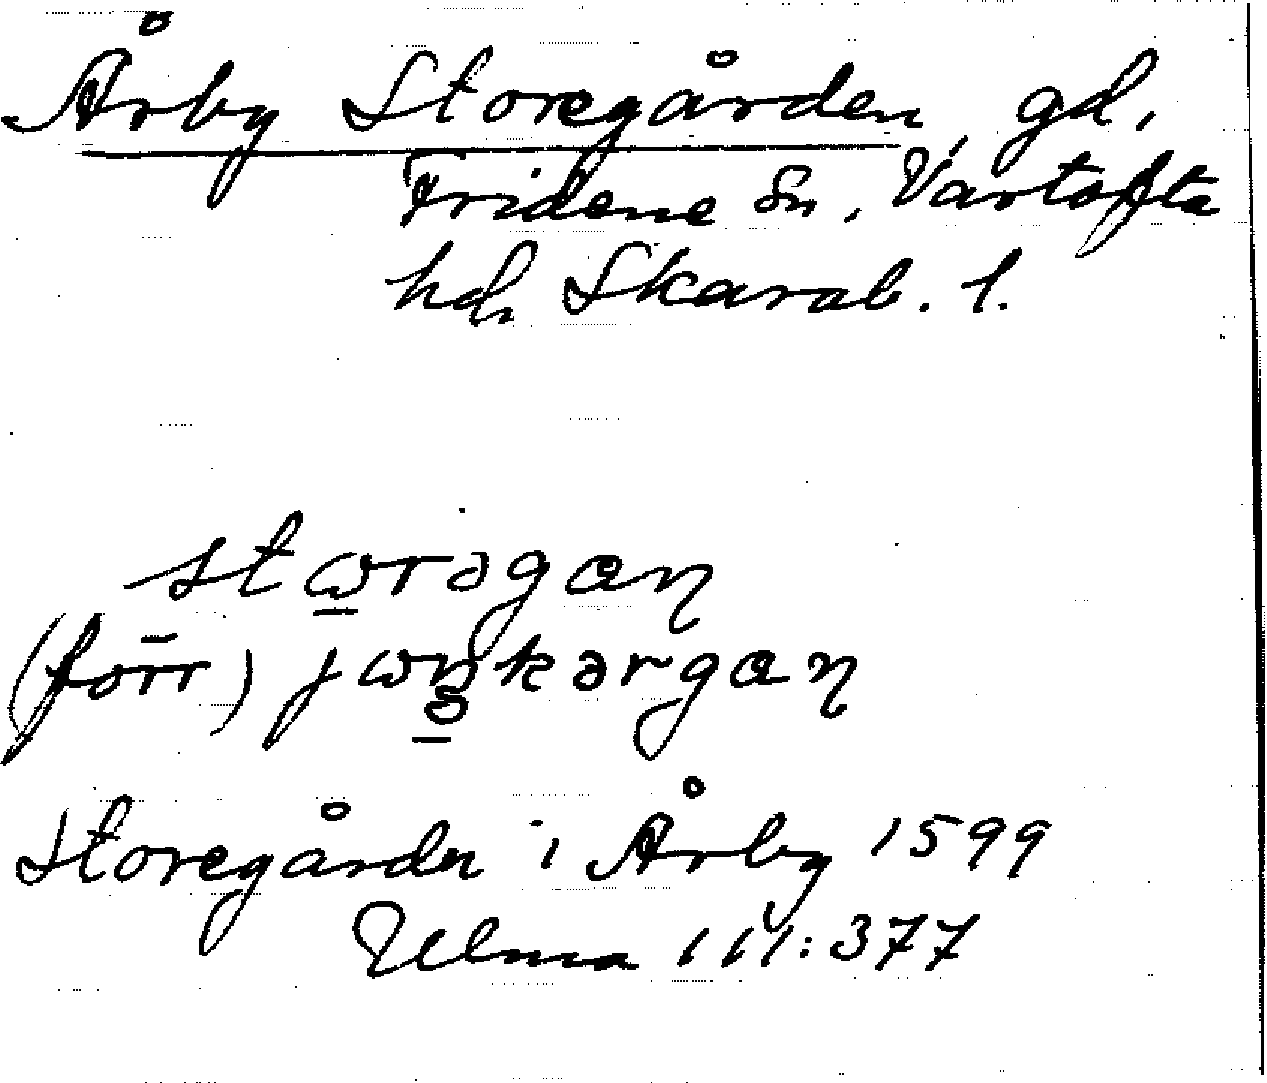 Årby Storegården, gd.
Fridene Sn, Vartofta
hd, Skarab. l.
stωrəgaɳ
(förr) jωŋkərgaɳ
Storegården i Årby 1599
Ulma 111:377